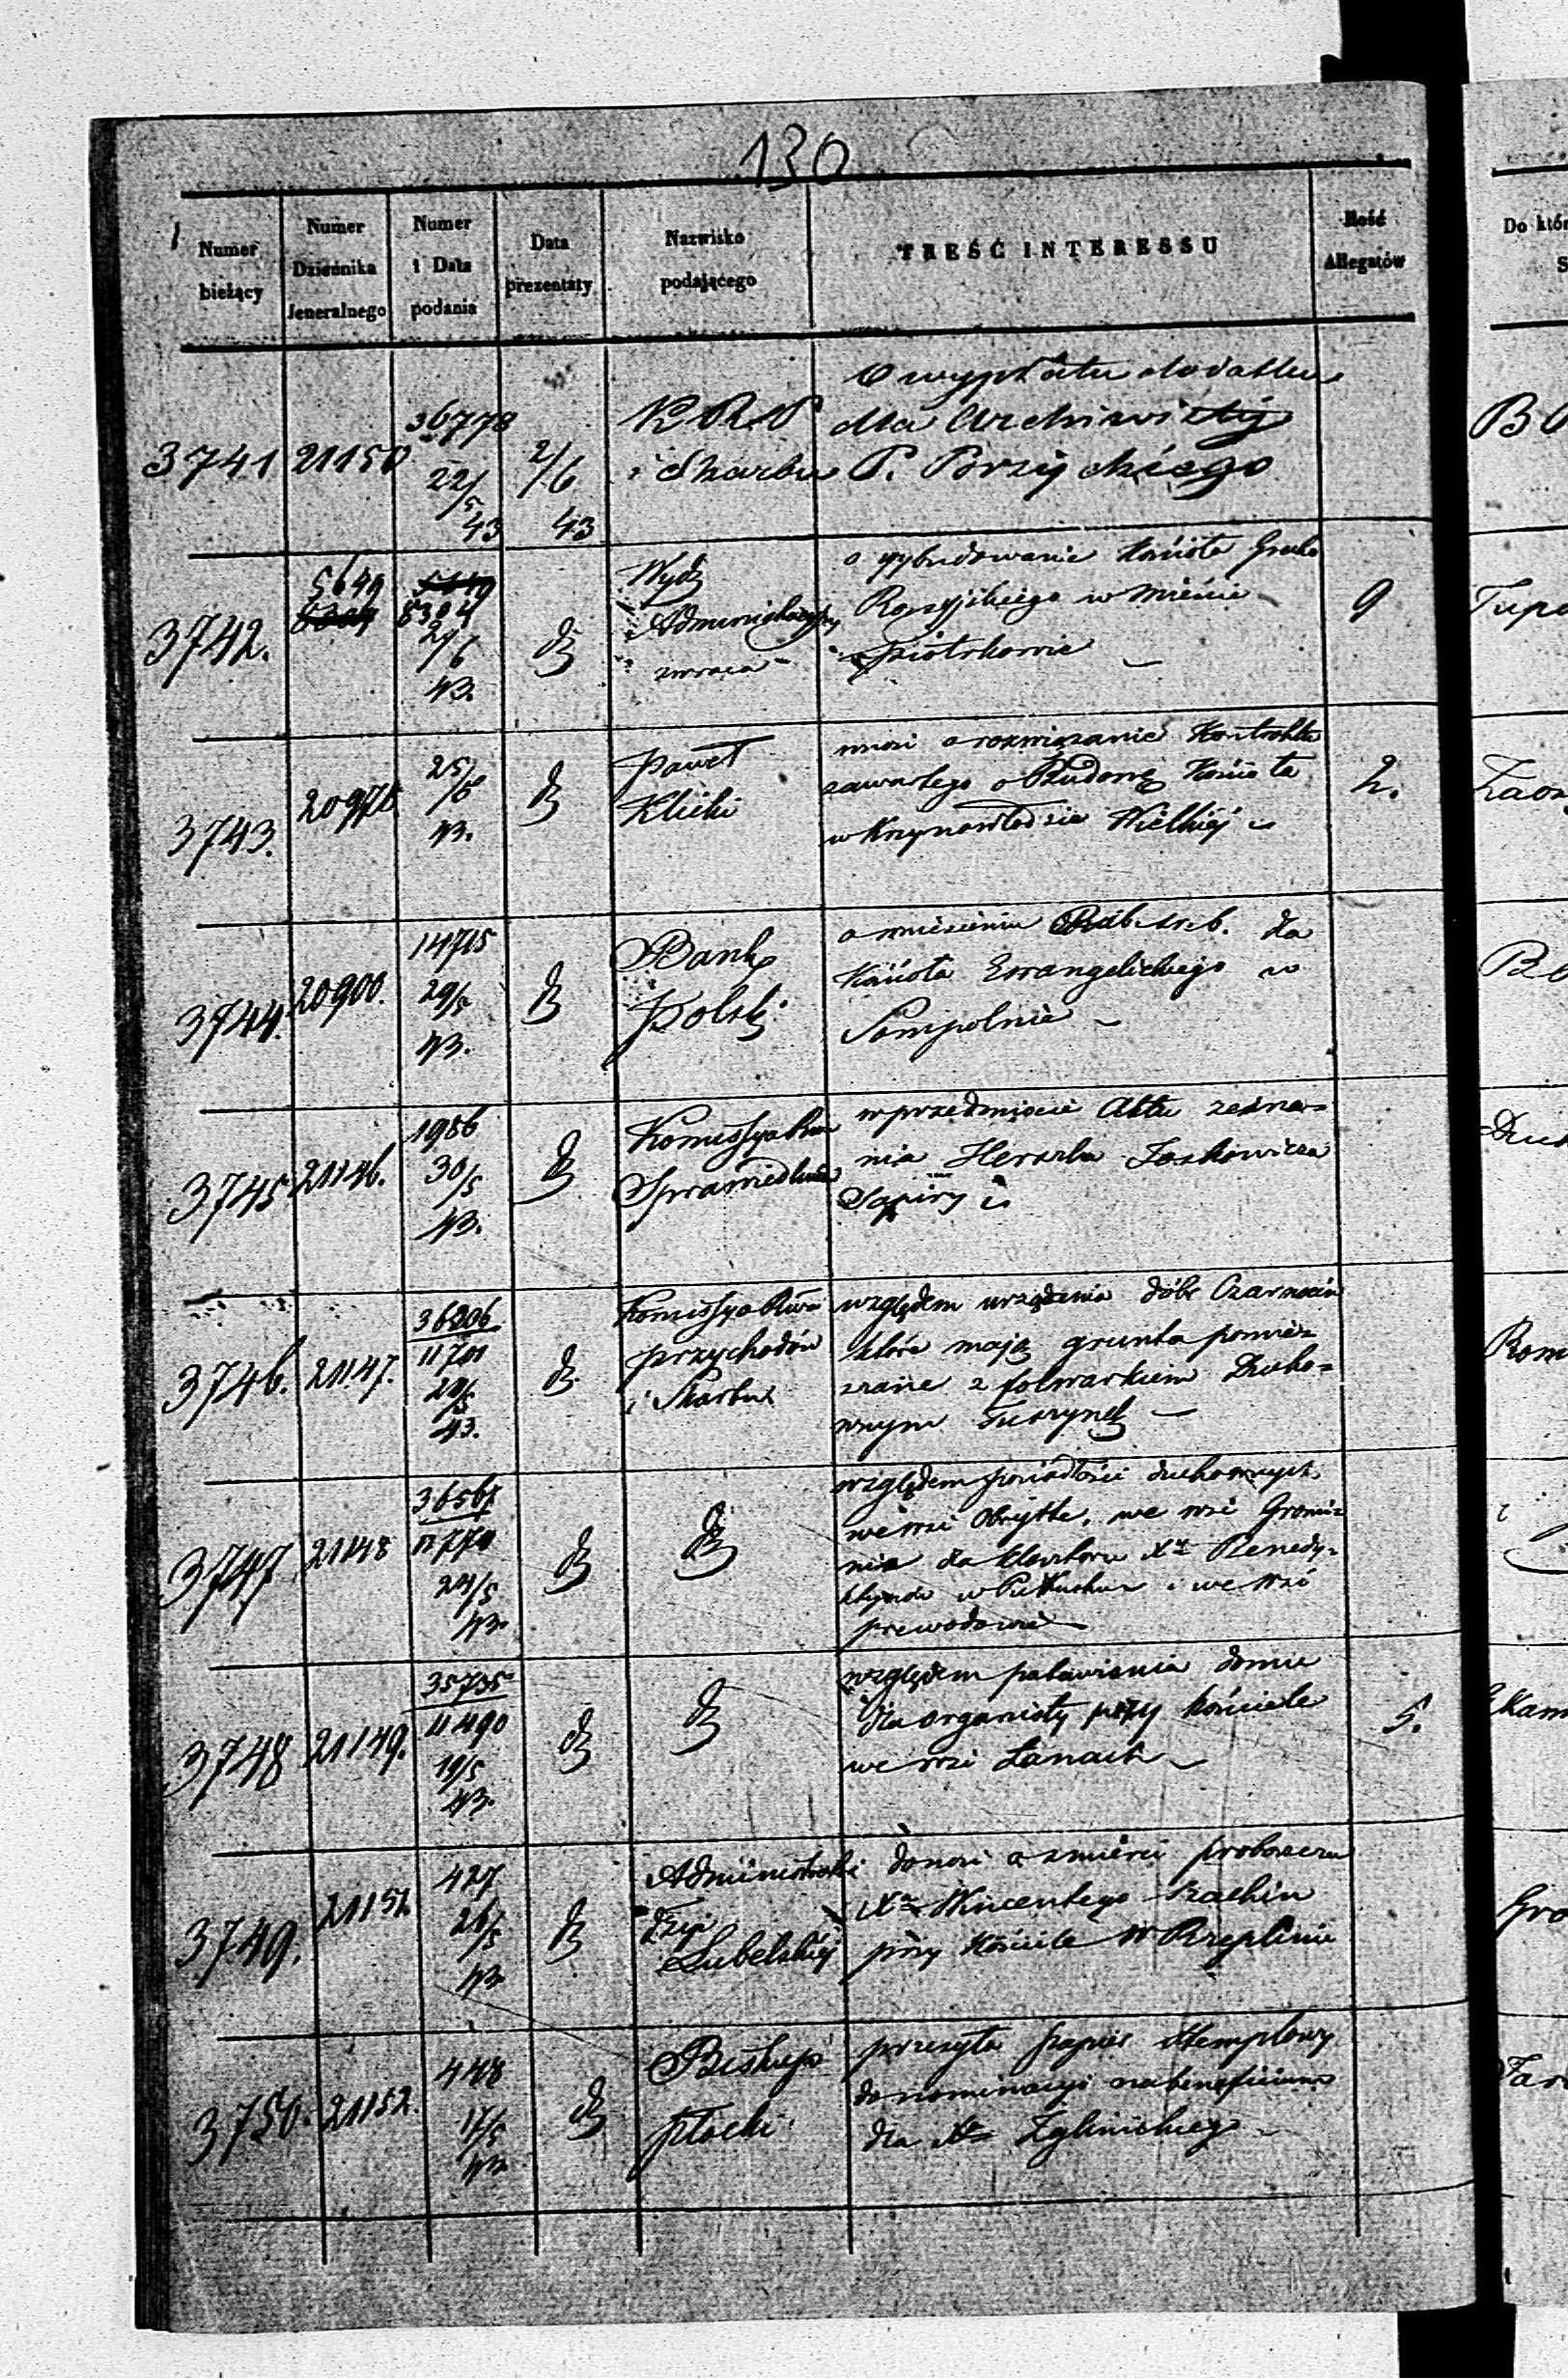 130
Numer bieżący | Numer Dziennika Jeneralnego | Numer i Data podania | Data prezentaty | Nazwisko podającego | TREŚĆ INTERESSU | Ilość Allegatów
3741 | 21150 | 36778 22/5 43 | 2/6 43 | K R P i Skarbu | O wypłatę dodatku
dla Archiwisty
P. Porzyckiego
3742. | 5649 | 5304 2/6 43. | d | Wydz Administracyjny zwraca | o wybudowanie Kościoła Greko
Rossyjskiego w Mieście
Piotrkowie
9
3743. | 20978 | 25/5 43. | d | Paweł Klicki | wnosi o rozwiązanie Kontraktu
zawartego o Budowę Kościoła
w Krzynowłodze Wielkiéj
2.
3744. | 20900. | 14715 29/5 43. | d | Bank Polski | o wniesieniu Rub. sr.
dla
Kościoła Ewangelickiego w
Sompolnie
3745 | 21146. | 1986 30/5 43. | d | Komissya Sprawiedliwości | w przedmiocie Aktu zezna=
nia Herszka Joskowicza
Sapiry
3746. | 21147. | 36206 11701 20/5 43. | d | Komissya Przychodów i Skarbu | względem urządzenia dóbr Czarnocin
które mają grunta pomie=
szane z folwarkiem Ducho=
wnym Tuszynek
3747 | 21148 | 3656 11774 24/5 43. | d | d | względem posiadłości duchownych
we wsi Obrytte, we wsi Gromi=
nia dla Klasztoru Xy Benedy=
ktynów w Pułtusku i we wsi
Przewodowie
3748 | 21149. | 35735 11490 19/5 43. | d | d | względem postawienia domu
dla organisty przy kościele
we wsi Łanach
5.
3749. | 21151. | 427 26/5 43 | d | Administrator Dyec Lubelskiéj | donosi o śmierci proboszcza
Xa Wincentego
przy Kościele w Rzeplinie
3750. | 21152. | 448 17/5 43 | d | Biskup Płocki | przesyła papier stemplowy
do nominacyi na beneficium
dla Xa Zglinickiego